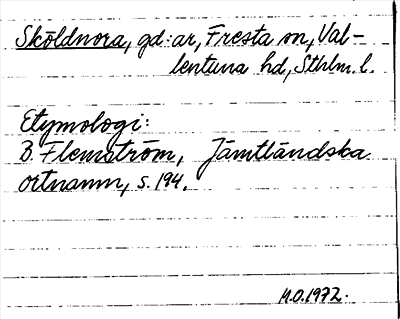 Sköldnora, gd:ar, Fresta sn, Val-
lentuna hd, Sthlm. l.
Etymologi:
B. Flemström, Jämtländska
ortnamn, s. 194.
M.O. 1972.